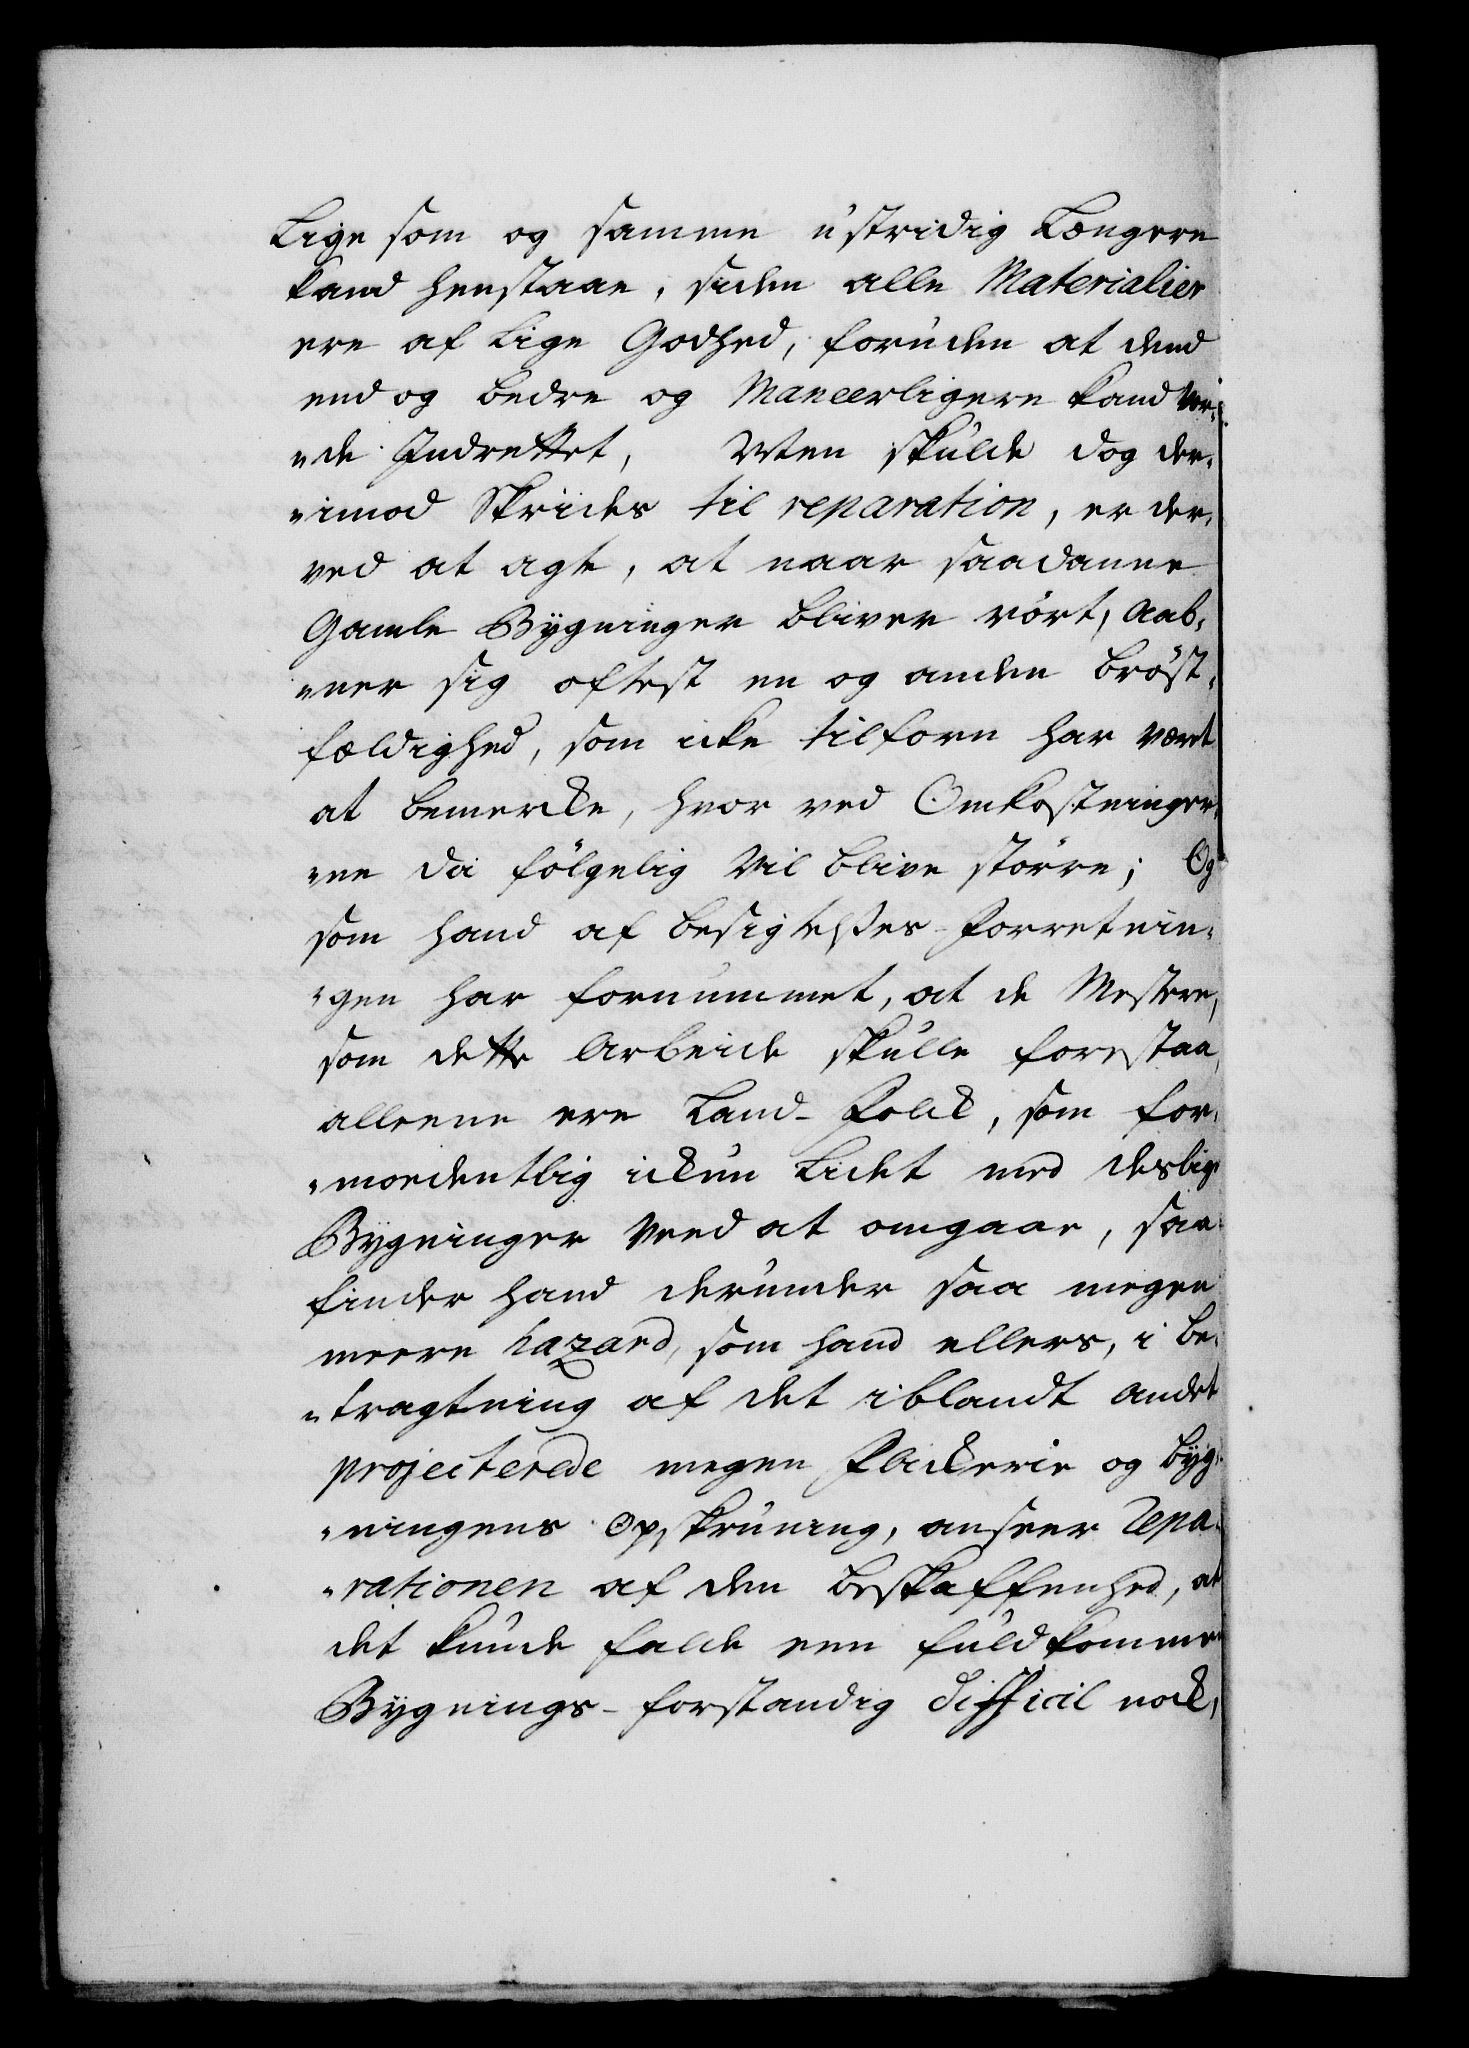 Lige som og samme ustridig Længere
kand henstaae, siden alle Materialier
ere af Lige Godhed, foruden at dend
end og bedre og Maneerligere kand vor-
"de Indrettet, Men skulde dog der-
"imod Skrides til reparation, er der-
ved at agte, at naar saadanne
Gamle Bygninger bliver rört, Aab-
"ner sig oftest en og anden bröst-
fældighed, som icke tilforn har vært
at bemercke, hvor ved Omkostninger-
"ne da fölgelig vil blive större; Og
som hand af besigtelses-Forretnin-
"gen har fornummet, at de Mestere,
som dette Arbeide skulle forestaa,
alleene ere Land-Folck, som for-
"moedentlig ickun Lidet med deslige
Bygninger veed at omgaae, saa
finder hand derunder saa megen
meere hazard, som hand ellers, i be-
"tragtning af det iblandt andet
projecterede megen Flickerie og byg-
"ningens Opskruning, anseer repa-
"rationen af den beskaffenhed, at
det kunde falde een fuldkommen
Bygnings-forstandig difficil nock,